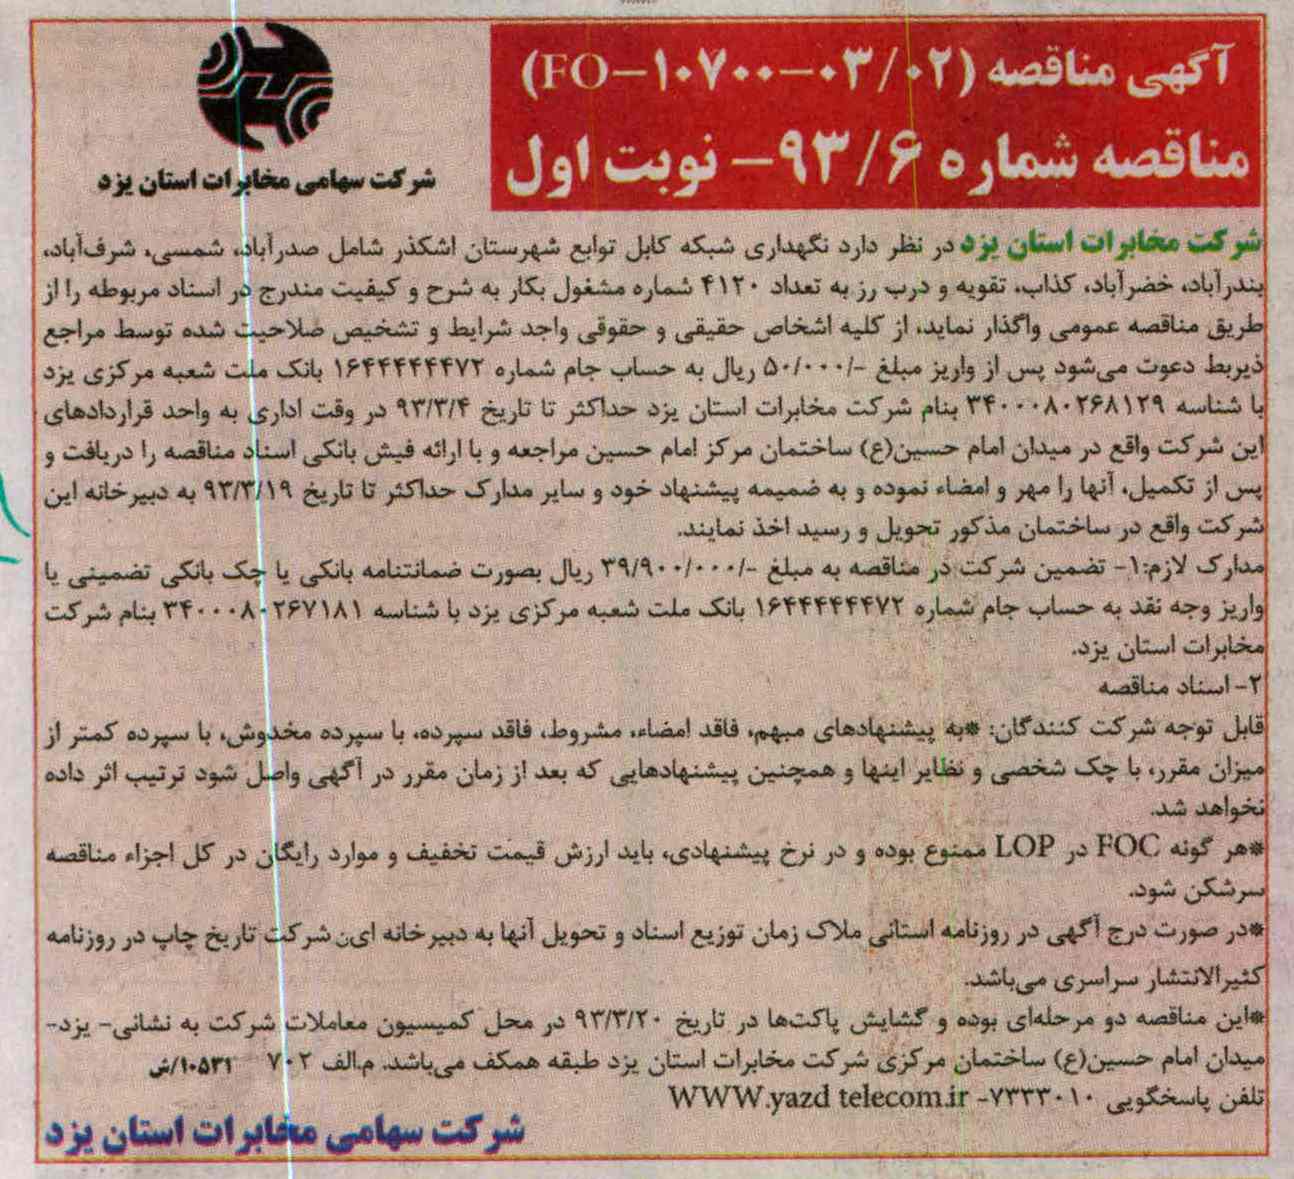 آگهی مناقصه (FO-۱۰۷۰۰-۰۳/۰۲)
مناقصه شماره ۹۳/۶- نوبت اول
شرکت سهامی مخابرات استان یزد
شرکت مخابرات استان یزد در نظر دارد نگهداری شبکه کابل توابع شهرستان اشکذر شامل صدرآباد، شمسی، شرف‌آباد،
بندرآباد، خضرآباد، کذاب، تقویه و درب رز به تعداد ۴۱۲۰ شماره مشغول بکار به شرح و کیفیت مندرج در اسناد مربوطه را از
طریق مناقصه عمومی واگذار نماید، از کلیه اشخاص حقیقی و حقوقی واجد شرایط و تشخیص صلاحیت شده توسط مراجع
ذیربط دعوت می‌شود پس از واریز مبلغ -/۵۰/۰۰۰ ریال به حساب جام شماره ۱۶۴۴۴۴۴۴۷۲ بانک ملت شعبه مرکزی یزد
با شناسه ۳۴۰۰۰۸۰۲۶۸۱۲۹ بنام شرکت مخابرات استان یزد حداکثر تا تاریخ ۹۳/۳/۴ در وقت اداری به واحد قراردادهای
این شرکت واقع در میدان امام حسین(ع) ساختمان مرکز امام حسین مراجعه و با ارائه فیش بانکی اسناد مناقصه را دریافت و
پس از تکمیل، آنها را مهر و امضاء نموده و به ضمیمه پیشنهاد خود و سایر مدارک حداکثر تا تاریخ ۹۳/۳/۱۹ به دبیرخانه این
شرکت واقع در ساختمان مذکور تحویل و رسید اخذ نمایند.
مدارک لازم:۱- تضمین شرکت در مناقصه به مبلغ -/۳۹/۹۰۰/۰۰۰ ریال بصورت ضمانتنامه بانکی یا چک بانکی تضمینی یا
واریز وجه نقد به حساب جام شماره ۱۶۴۴۴۴۴۴۷۲ بانک ملت شعبه مرکزی یزد با شناسه ۳۴۰۰۰۸۰۲۶۷۱۸۱ بنام شرکت
مخابرات استان یزد.
۲- اسناد مناقصه
قابل توجه شرکت کنندگان: *به پیشنهادهای مبهم، فاقد امضاء، مشروط، فاقد سپرده، با سپرده مخدوش، با سپرده کمتر از
میزان مقرر، با چک شخصی و نظایر اینها و همچنین پیشنهادهایی که بعد از زمان مقرر در آگهی واصل شود ترتیب اثر داده
نخواهد شد.
*هر گونه FOC در LOP ممنوع بوده و در نرخ پیشنهادی، باید ارزش قیمت تخفیف و موارد رایگان در کل اجزاء مناقصه
سرشکن شود.
*در صورت درج آگهی در روزنامه استانی ملاک زمان توزیع اسناد و تحویل آنها به دبیرخانه این شرکت تاریخ چاپ در روزنامه
کثیرالانتشار سراسری می‌باشد.
*این مناقصه دو مرحله‌ای بوده و گشایش پاکت‌ها در تاریخ ۹۳/۳/۲۰ در محل کمیسیون معاملات شرکت به نشانی- یزد-
میدان امام حسین(ع) ساختمان مرکزی شرکت مخابرات استان یزد طبقه همکف می‌باشد. م.الف ۷۰۲ ۱۰۵۳۱/ش
تلفن پاسخگویی ۷۳۳۳۰۱۰- WWW.yazd telecom.ir
شرکت سهامی مخابرات استان یزد